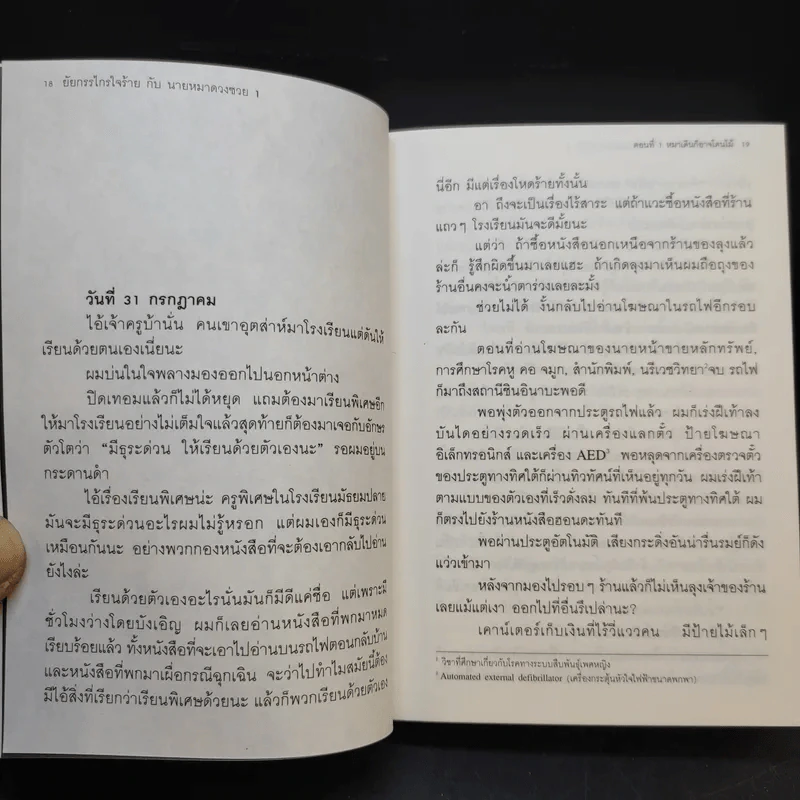 18 ยัยกรรไกรใจร้าย กับ นายหมาดวงซวย 1
วันที่ 31 กรกฎาคม
ไอ้เจ้าครูบ้านั่น คนเขาอุตส่าห์มาโรงเรียนแต่ดันให้
เรียนด้วยตนเองเนี่ยนะ
ผมบ่นในใจพลางมองออกไปนอกหน้าต่าง
ปิดเทอมแล้วก็ไม่ได้หยุด แถมต้องมาเรียนพิเศษอีก
ให้มาโรงเรียนอย่างไม่เต็มใจแล้วสุดท้ายก็ต้องมาเจอกับอักษร
ตัวโตว่า “มีธุระด่วน ให้เรียนด้วยตัวเองนะ” รอผมอยู่บน
กระดานดำ
ไอ้เรื่องเรียนพิเศษน่ะ ครูพิเศษในโรงเรียนมัธยมปลาย
มันจะมีธุระด่วนอะไรผมไม่รู้หรอก แต่ผมเองก็มีธุระด่วน
เหมือนกันนะ อย่างพวกกองหนังสือที่จะต้องเอากลับไปอ่าน
ยังไงล่ะ
เรียนด้วยตัวเองอะไรนั่นมันก็มีดีแค่ชื่อ แต่เพราะมี
ชั่วโมงว่างโดยบังเอิญ ผมก็เลยอ่านหนังสือที่พกมาหมด
เรียบร้อยแล้ว ทั้งหนังสือที่จะเอาไปอ่านบนรถไฟตอนกลับบ้าน
และหนังสือที่พกมาเผื่อกรณีฉุกเฉิน จะว่าไปทำไมสมัยนี้ต้อง
มีไอ้สิ่งที่เรียกว่าเรียนพิเศษด้วยนะ แล้วก็พวกเรียนด้วยตัวเอง
ตอนที่ 1 หมาเดินก็อาจโดนไม้ 19
นี่อีก มีแต่เรื่องโหดร้ายทั้งนั้น
อา ถึงจะเป็นเรื่องไร้สาระ แต่ถ้าแวะซื้อหนังสือที่ร้าน
แถวๆ โรงเรียนมันจะดีมั้ยนะ
แต่ว่า ถ้าซื้อหนังสือนอกเหนือจากร้านของลุงแล้ว
ล่ะก็ รู้สึกผิดขึ้นมาเลยแฮะ ถ้าเกิดลุงมาเห็นผมถือถุงของ
ร้านอื่นคงจะน้ำตาร่วงเลยละมั้ง
ช่วยไม่ได้ งั้นกลับไปอ่านโฆษณาในรถไฟอีกรอบ
ละกัน
ตอนที่อ่านโฆษณาของนายหน้าขายหลักทรัพย์,
การศึกษาโรคหู คอ จมูก, สำนักพิมพ์, นรีเวชวิทยา¹จบ รถไฟ
ก็มาถึงสถานีชินอินาบะพอดี
พอพุ่งตัวออกจากประตูรถไฟแล้ว ผมก็เร่งฝีเท้าลง
บันไดอย่างรวดเร็ว ผ่านเครื่องแลกตั๋ว ป้ายโฆษณา
อิเล็กทรอนิกส์ และเครื่อง AED³ พอหลุดจากเครื่องตรวจตั๋ว
ของประตูทางทิศใต้ก็ผ่านทิวทัศน์ที่เห็นอยู่ทุกวัน ผมเร่งฝีเท้า
ตามแบบของตัวเองที่เร็วดั่งลม ทันทีที่พ้นประตูทางทิศใต้ ผม
ก็ตรงไปยังร้านหนังสือฮอนดะทันที
พอผ่านประตูอัตโนมัติ เสียงกระดิ่งอันน่ารื่นรมย์ก็ดัง
แว่วเข้ามา
หลังจากมองไปรอบๆ ร้านแล้วก็ไม่เห็นลุงเจ้าของร้าน
เลยแม้แต่เงา ออกไปที่อื่นรึเปล่านะ?
เคาน์เตอร์เก็บเงินที่ไร้วี่แววคน มีป้ายไม้เล็กๆ
วิชาที่ศึกษาเกี่ยวกับโรคทางระบบสืบพันธุ์เพศหญิง
Automated external defibrillator (เครื่องกระตุ้นหัวใจไฟฟ้าขนาดพกพา)